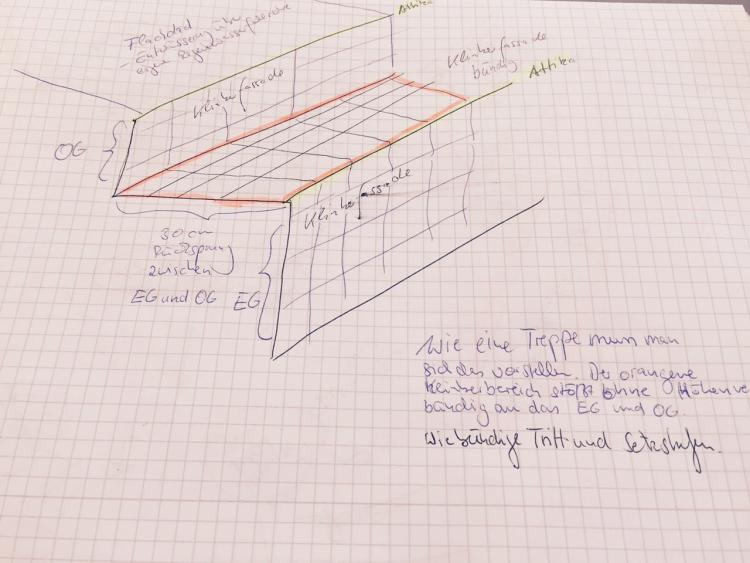 Attika
Flachdach
- Entwässerung über
eigene Regenwasserfallrohre
Klinkerfassade
bündig
Attika
Klinkerfassade
OG
Klinkerfassade
30 cm
Rücksprung
zwischen
EG und OG
EG
Wie eine Treppe muss man
sich das vorstellen. Der orangene
Klinkerbereich stößt ohne Höhenve
bündig an das EG und OG.
Wie bündige Tritt- und Setzstufen.